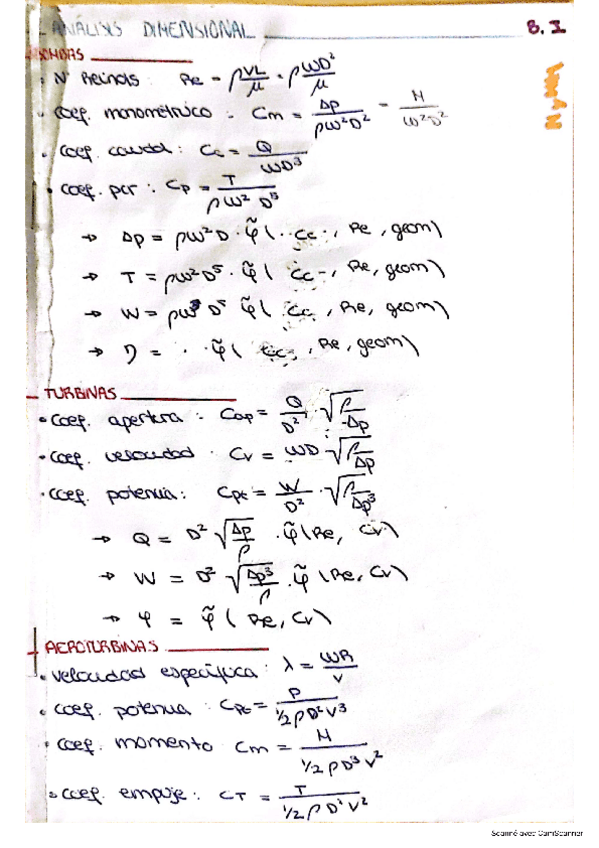 ANÁLISIS DIMENSIONAL 8. I
BOMBAS
· Nº Reinols: Re = ρVL/μ = ρWD²/μ
· coef. manométrico: Cm = Δp/ρω²D² = H/ω²D²
· coef. caudal: Cc = Q/WD³
· coef. par: Cp = T/ρW²D⁵
→ Δp = ρω²D · φ̃ ( Cc , Re , geom)
→ T = ρω²D⁵ · φ̃ ( Cc , Re, geom)
→ W = ρω³D⁵ φ̃ ( Cc , Re, geom)
→ η = φ̃ ( Cc , Re, geom)
TURBINAS
· coef. apertura: Cap = Q/D² · √ρ/-Δp
· coef. velocidad Cv = WD √ρ/Δp
· coef. potencia: Cpc = W/D² · √ρ/Δp³
→ Q = D² √Δp/ρ · φ̃ (Re, Cv)
→ W = D² √Δp³/ρ · φ̃ (Re, Cv)
→ φ = φ̃ (Re, Cv)
AEROTURBINAS
· velocidad específica: λ = WR/v
· coef. potencia: Cpc = P/½ρD²V³
· coef. momento Cm = M/½ρD³V²
· coef. empuje: CT = T/½ρD²V²
Scanné avec CamScanner